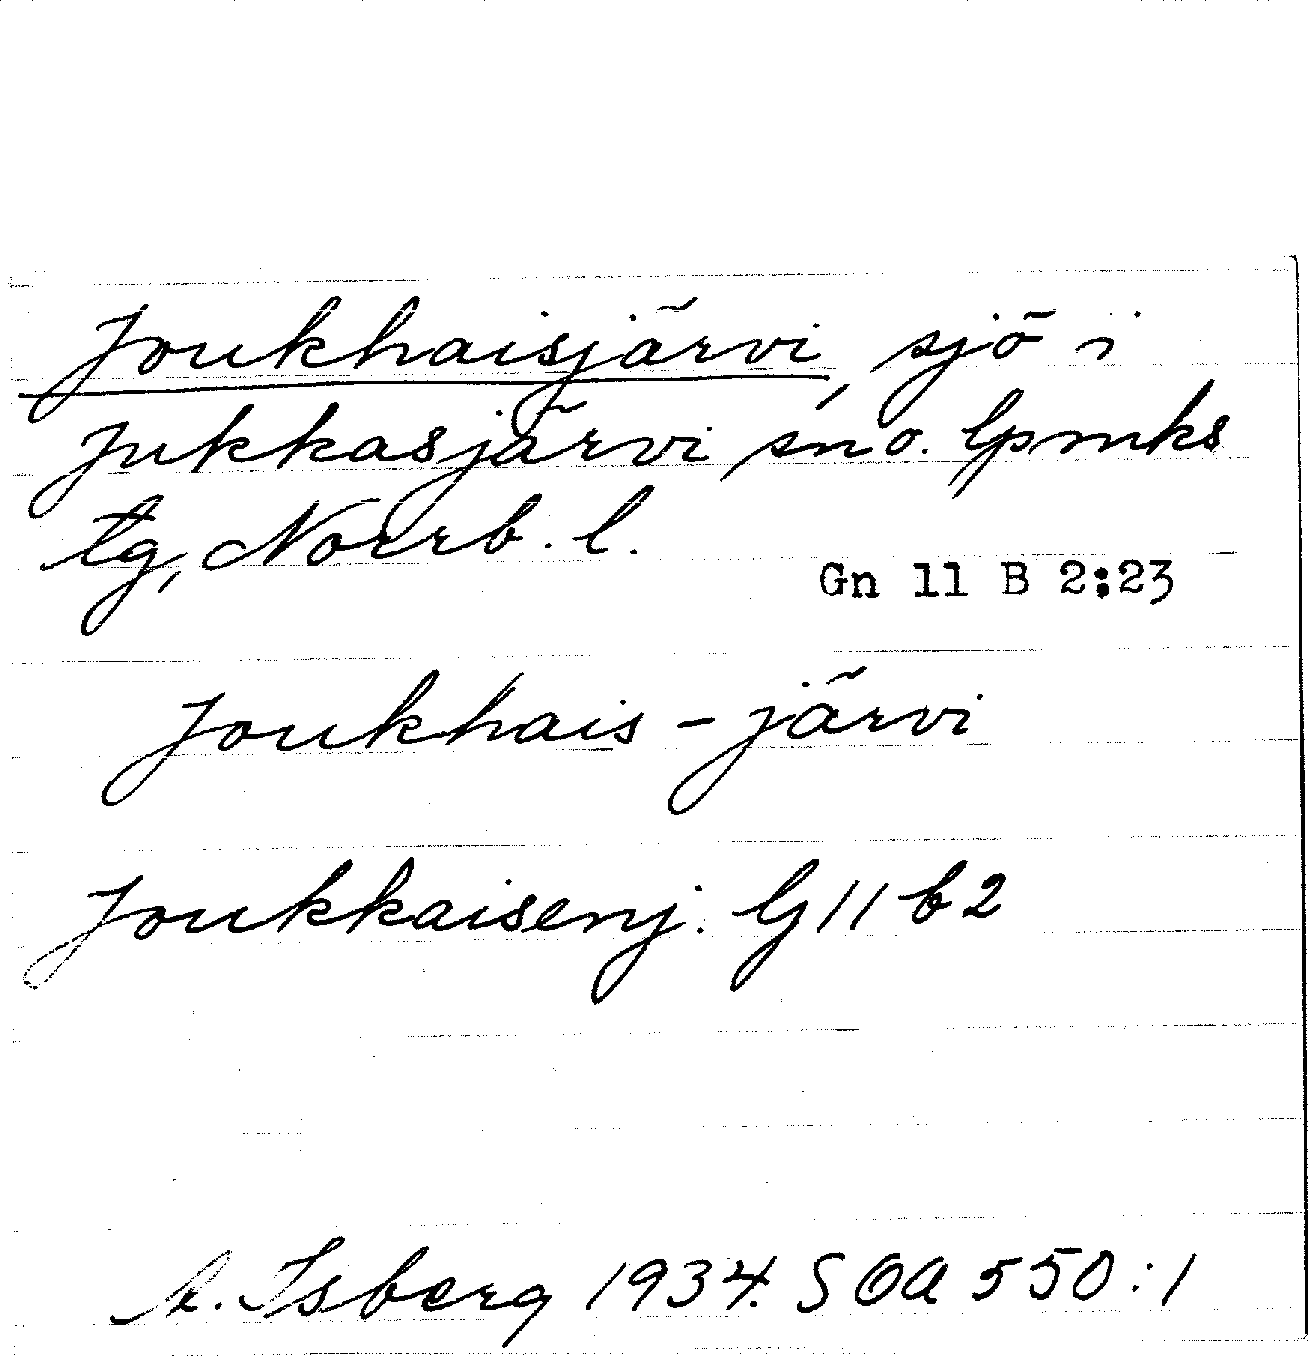 Joukhaisjärvi, sjö i
Jukkasjärvi sn o. lpmks
tg, Norrb. l.
Gn 11 B 2:23
Joukhais-järvi
Joukkaisenj. G 11 b 2
Isberg 1934. SOA 550:1